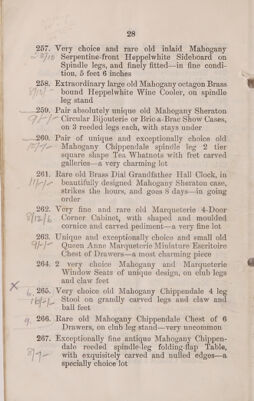 28
257. Very choice and rare old inlaid Mahogany
Serpentine-front Heppelwhite Sideboard on
Spindle legs, and finely fitted—in fine condi-
tion, 5 feet 6 inches
258. Extraordinary large old Mahogany octagon Brass
bound Heppelwhite Wine Cooler, on spindle
leg stand
259. Pair absolutely unique old Mahogany Sheraton
Circular Bijouterie or Bric-a-Brac Show Cases,
on 3 reeded legs each, with stays under
260. Pair of unique and exceptionally choice old
Mahogany Chippendale spindle leg 2 tier
square shape Tea Whatnots with fret carved
galleries—a very charming lot
261. Rare old Brass Dial Grandfather Hall Clock, in
beautifully designed Mahogany Sheraton case,
strikes the hours, and goes 8 days—in going
order
262. Very fine and rare old Marqueterie 4-Door
8/12/6 Corner Cabinet, with shaped and moulded
cornice and carved pediment—a very fine lot
263. Unique and exceptionally choice and small old
Queen Anne Marqueterie Miniature Escritoire
Chest of Drawers—a most charming piece
264. 2 very choice Mahogany and Marqueterie
Window Seats of unique design, on club legs
and claw feet
× 265. Very choice old Mahogany Chippendale 4 leg
Stool on grandly carved legs and claw and
ball feet
9. 266. Rare old Mahogany Chippendale Chest of 6
Drawers, on club leg stand—very uncommon
267. Exceptionally fine antique Mahogany Chippen-
dale reeded spindle-leg folding-flap Table,
with exquisitely carved and nulled edges—a
specially choice lot